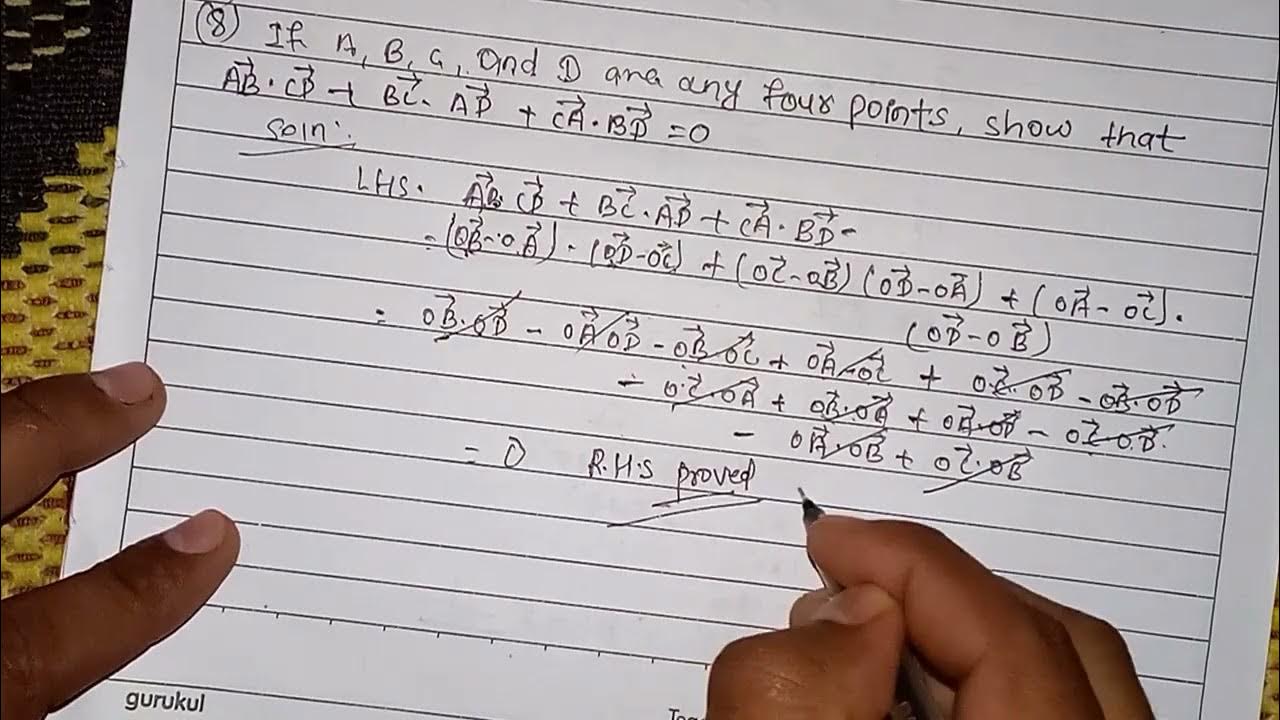 (8) If A, B, C, and D are any four points, show that
A⃗B⃗·C⃗D⃗ + B⃗C⃗·A⃗D⃗ + C⃗A⃗·B⃗D⃗ = 0
Soln:
LHS. A⃗B⃗·C⃗D⃗ + B⃗C⃗·A⃗D⃗ + C⃗A⃗·B⃗D⃗ -
= (OB⃗ - OA⃗) · (OD⃗ - OC⃗) + (OC⃗ - OB⃗) (OD⃗ - OA⃗) + (OA⃗ - OC⃗) ·
(OD⃗ - OB⃗)
= OB⃗·OD⃗ - OA⃗·OD⃗ - OB⃗·OC⃗ + OA⃗·OC⃗ + OC⃗·OD⃗ - OB⃗·OD⃗
- OC⃗·OA⃗ + OB⃗·OA⃗ + OA⃗·OD⃗ - OC⃗·OD⃗
- OA⃗·OB⃗ + OC⃗·OB⃗
= 0 R.H.S proved
gurukul